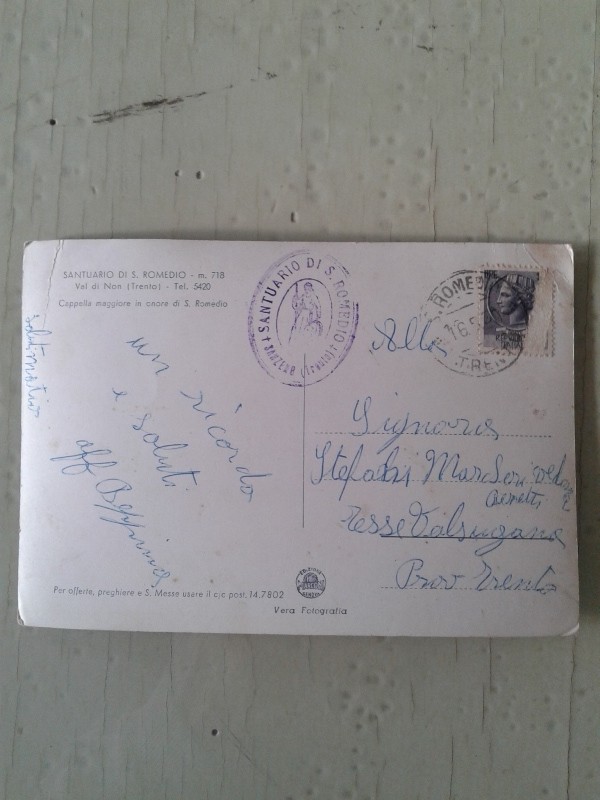 SANTUARIO DI S. ROMEDIO - m. 718
Val di Non (Trento) - Tel. 5420
Cappella maggiore in onore di S. Romedio
SANTUARIO DI S. ROMEDIO
SANZENO (Trento)
ROMED
16.5
TREN
un ricordo
e saluti
aff Beppina
Alla
Signora
Stefani
Tesse Valsugana
Prov Trento
Per offerte, preghiere e S. Messe usare il c/c post. 14.7802
Vera Fotografia